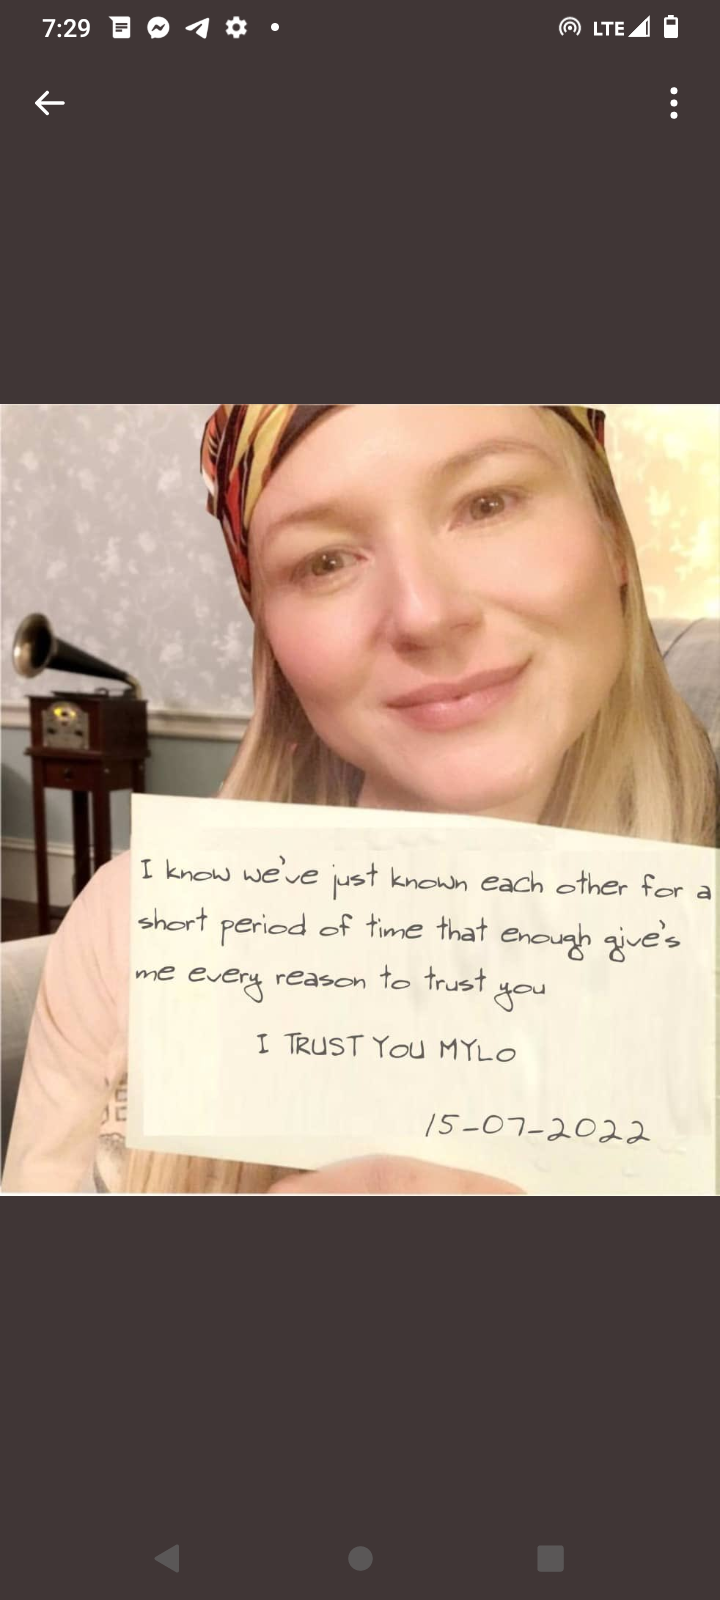 7:29
LTE
I know we've just known each other for a
short period of time that enough give's
me every reason to trust you
I TRUST YOU MYLO
15-07-2022